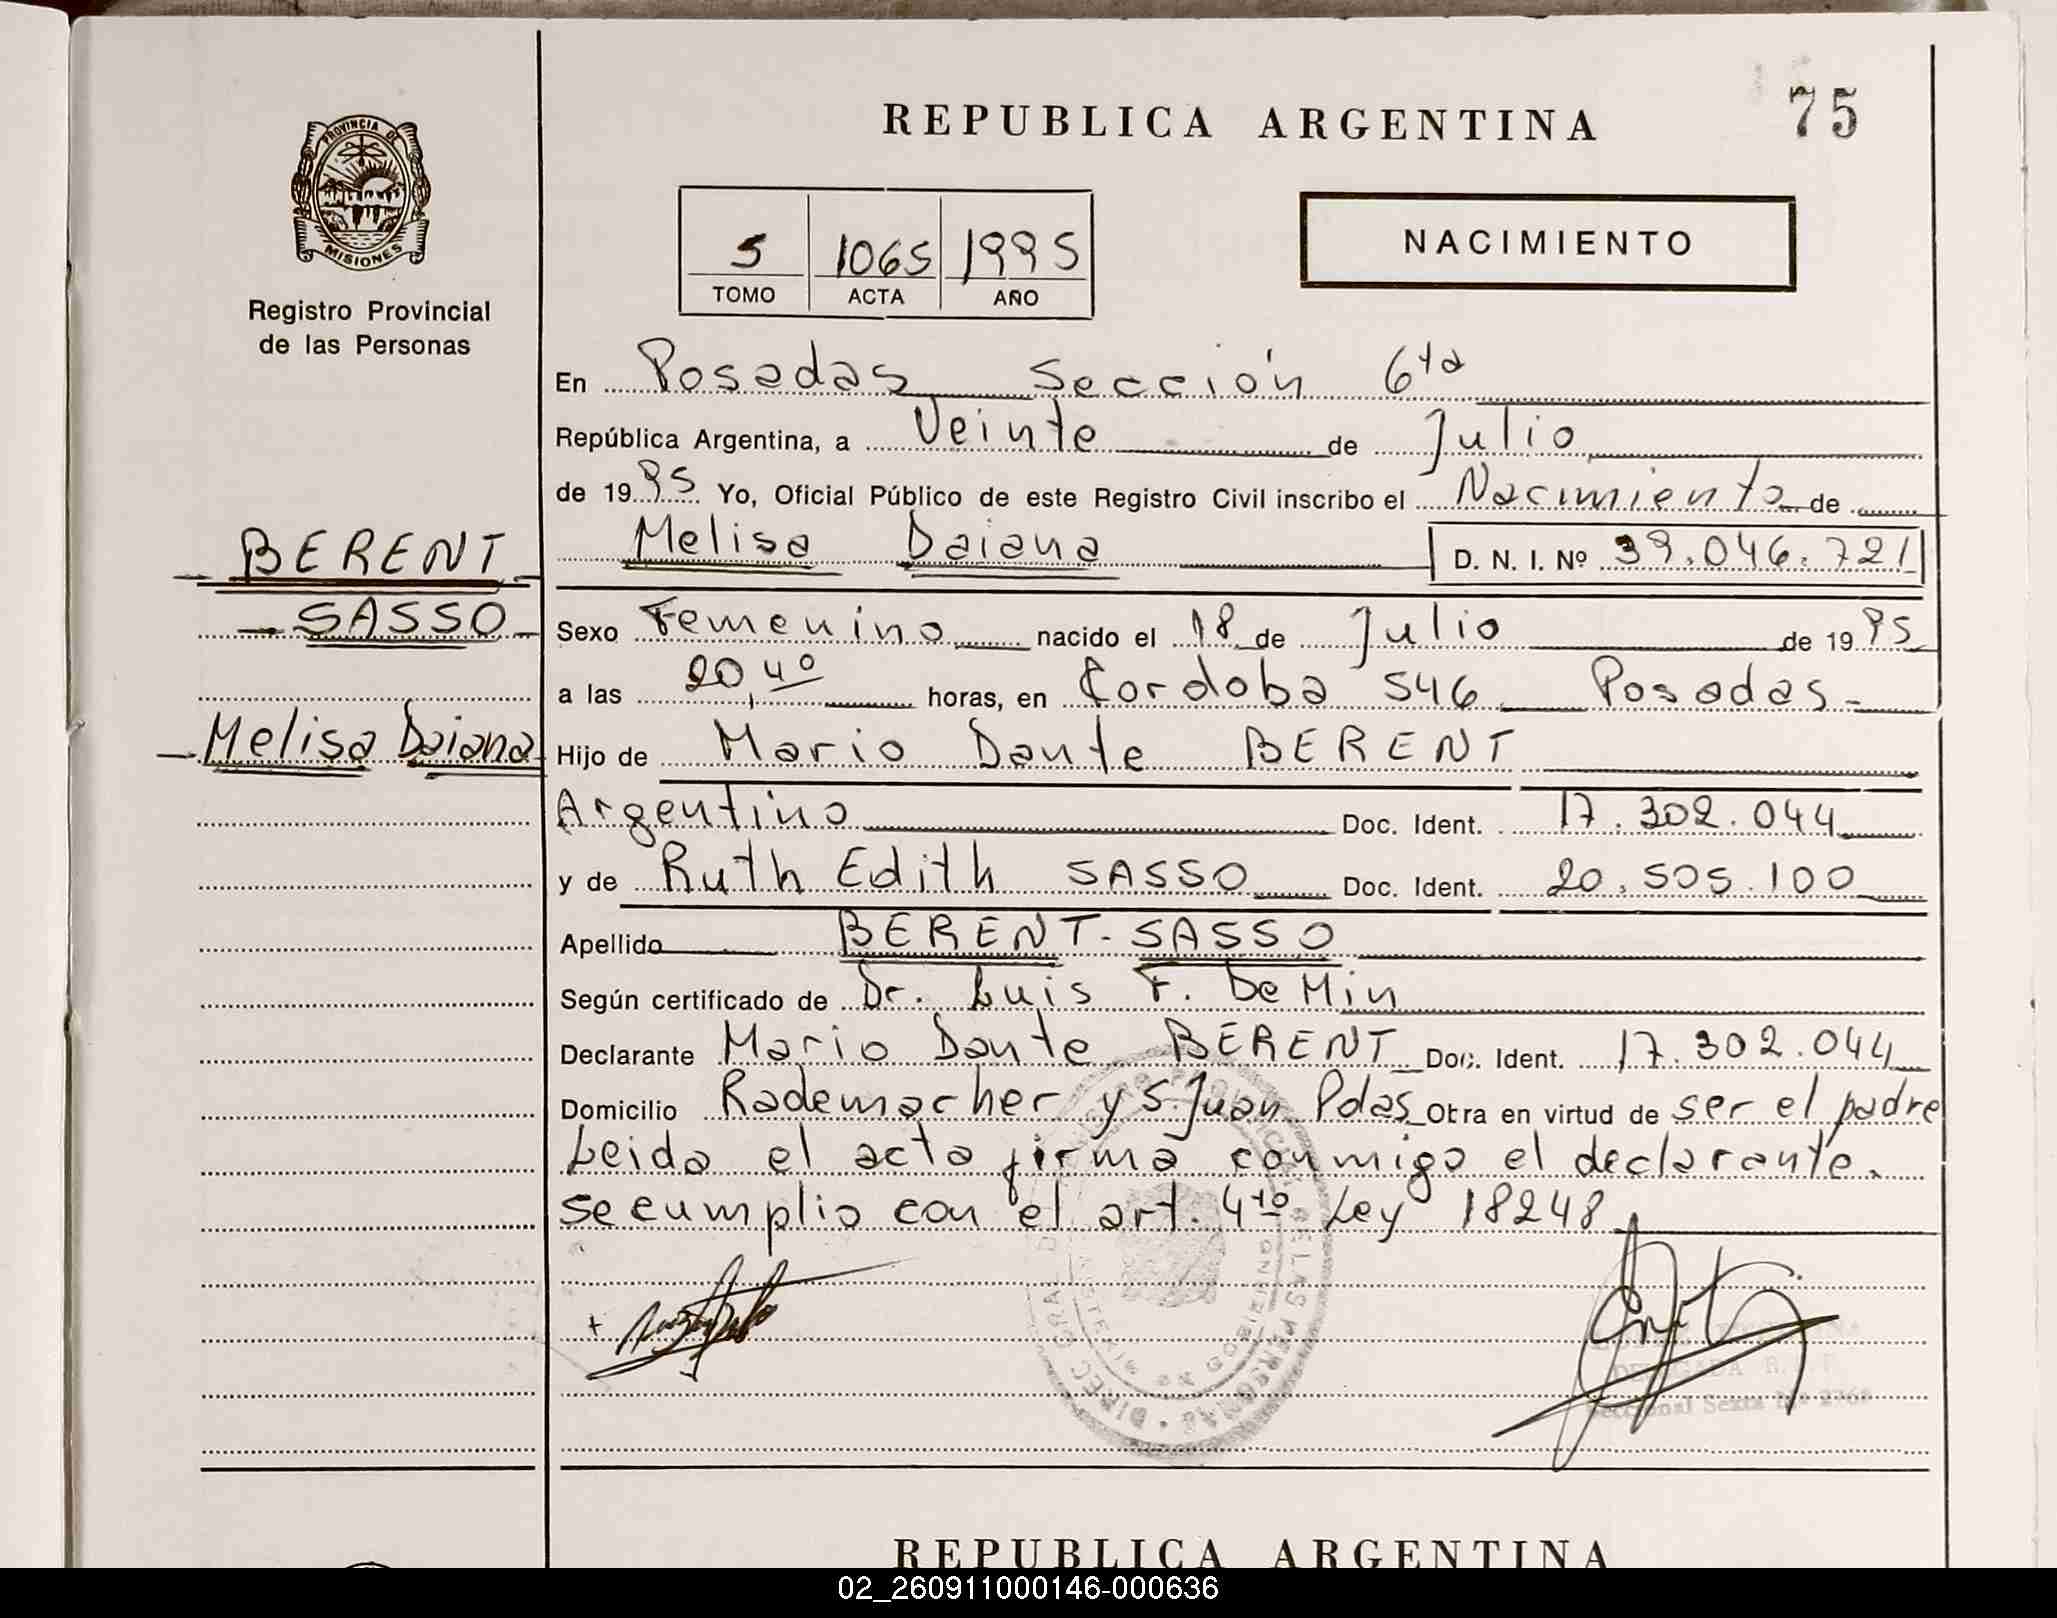 REPUBLICA ARGENTINA
75
PROVINCIA DE
MISIONES
Registro Provincial
de las Personas
5 1065 1995
TOMO ACTA AÑO
NACIMIENTO
En Posadas Sección 6ta
República Argentina, a Veinte de Julio
de 1995 Yo, Oficial Público de este Registro Civil inscribo el Nacimiento de
BERENT
Melisa Daiana D. N. I. Nº 39.046.721
SASSO
Sexo Femenino nacido el 18 de Julio de 1995
a las 20,40 horas, en Cordoba 546 Posadas
Melisa Daiana
Hijo de Mario Dante BERENT
Argentino Doc. Ident. 17.302.044
y de Ruth Edith SASSO Doc. Ident. 20.505.100
Apellido BERENT-SASSO
Según certificado de Dr. Luis F. De Min
Declarante Mario Dante BERENT Doc. Ident. 17.302.044
Domicilio Rademacher y S. Juan Pdas Obra en virtud de ser el padre
Leida el acta firma conmigo el declarante.
se cumplio con el art. 4to Ley 18248
Seccional Sexta Nº
REPUBLICA ARGENTINA
02_260911000146-000636